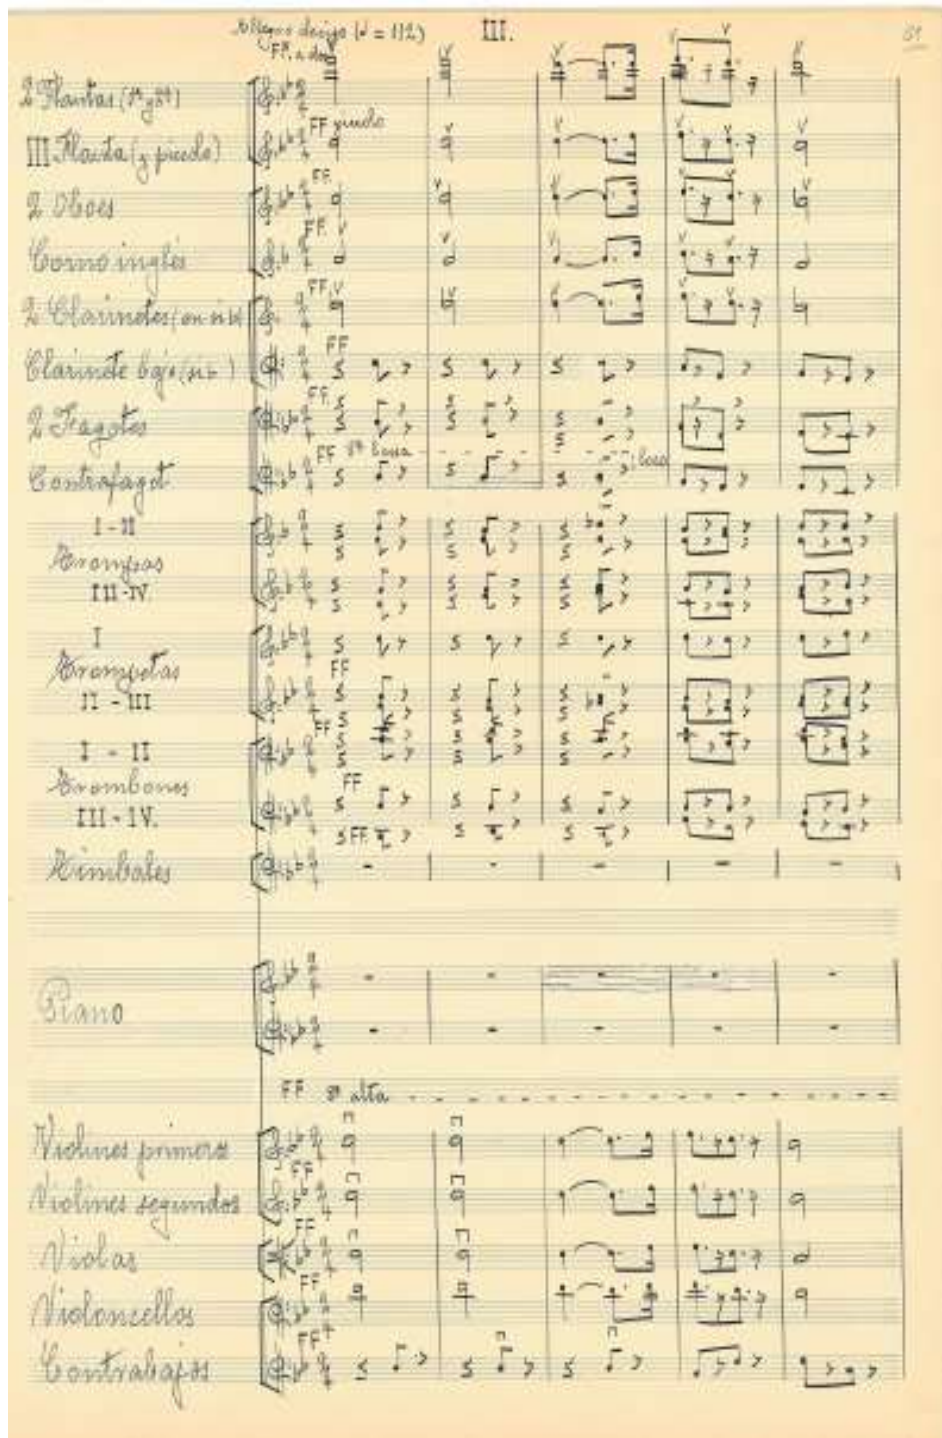 Allegro deciso (♩ = 112) III. 81
FF. a dos
2 Flautas (1ª y 2ª)
FF piccolo
III Flauta (y piccolo)
FF.
2 Oboes
FF.
Corno inglés
FF.
2 Clarinetes (en sib)
FF
Clarinete bajo (sib)
FF.
2 Fagotes
FF 8ª bassa loco
Contrafagot
I - II
Trompas
III - IV.
I
Trompetas
FF
II - III
FF
I - II
Trombones
FF
III - IV.
FF.
Timbales
Piano
FF 8ª alta
Violines primeros
FF
Violines segundos
FF
Violas
FF
Violoncellos
FF
Contrabajos